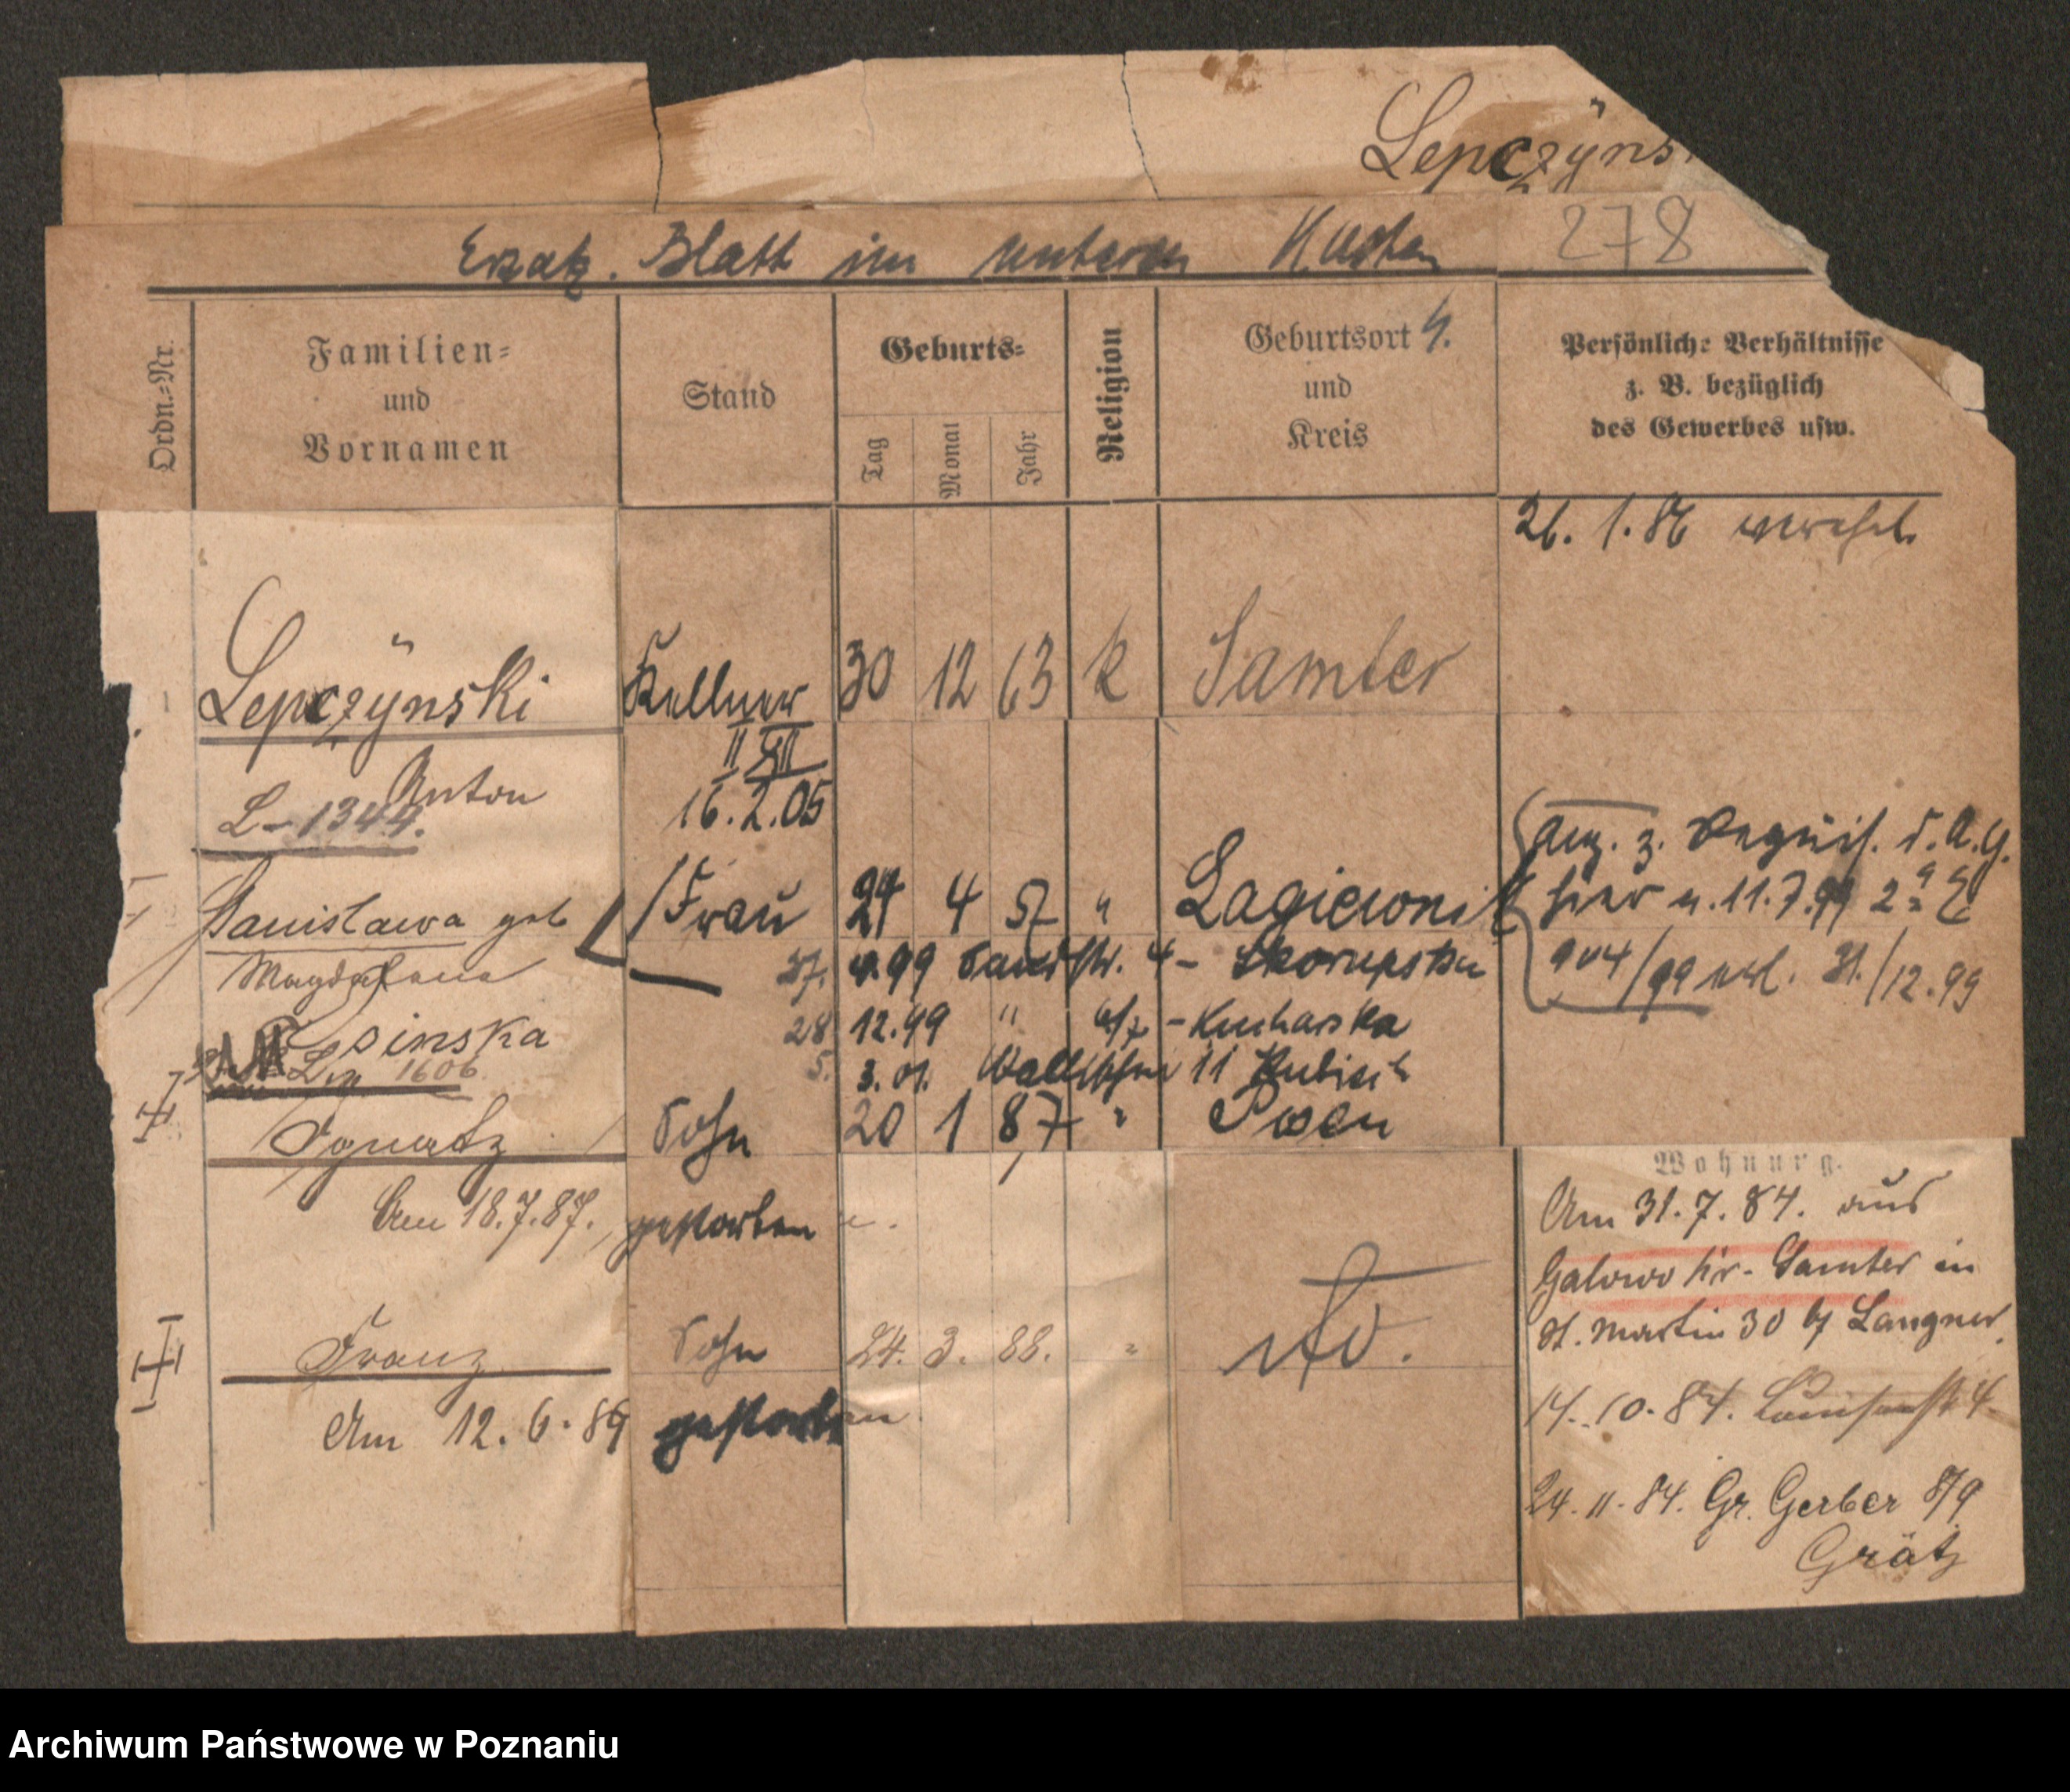 Lepczÿns
Ersatz. Blatt im unteren Kasten 278
Ordn.-Nr.
Familien-
und
Vornamen
Stand
Geburts-
Tag
Monat
Jahr
Religion
Geburtsort
und
Kreis
Persönliche Verhältnisse
z. B. bezüglich
des Gewerbes usw.
26. 1. 86 verehel.
Lepczÿnski Kellner 30 12 63 k Samter
II XII
Anton
L-1344. 16.2.05
Stanislawa geb Frau 24 4 57 "
Magdalena
27. 4.99 Sandstr. 4 - Skorupska
hier v. 11.7.99
904/99 31./12.99
sinska 28 12.99 " 6/7 - Kucharska
1606 5. 3.01. Wallischei 11 Kubiak
Ignatz Sohn 20 1 87 " Posen
Am 18.7.87. gestorben
Franz Sohn 24. 3. 88. "
Am 12.6.89 gestorben
Wohnung.
Am 31.7.84. aus
Galowo Kr. Samter in
St. Martin 30 by Langner.
14.10.84. Louisenstr 4
24.11.84. Gr. Gerber 8/9
Grätz
Archiwum Państwowe w Poznaniu